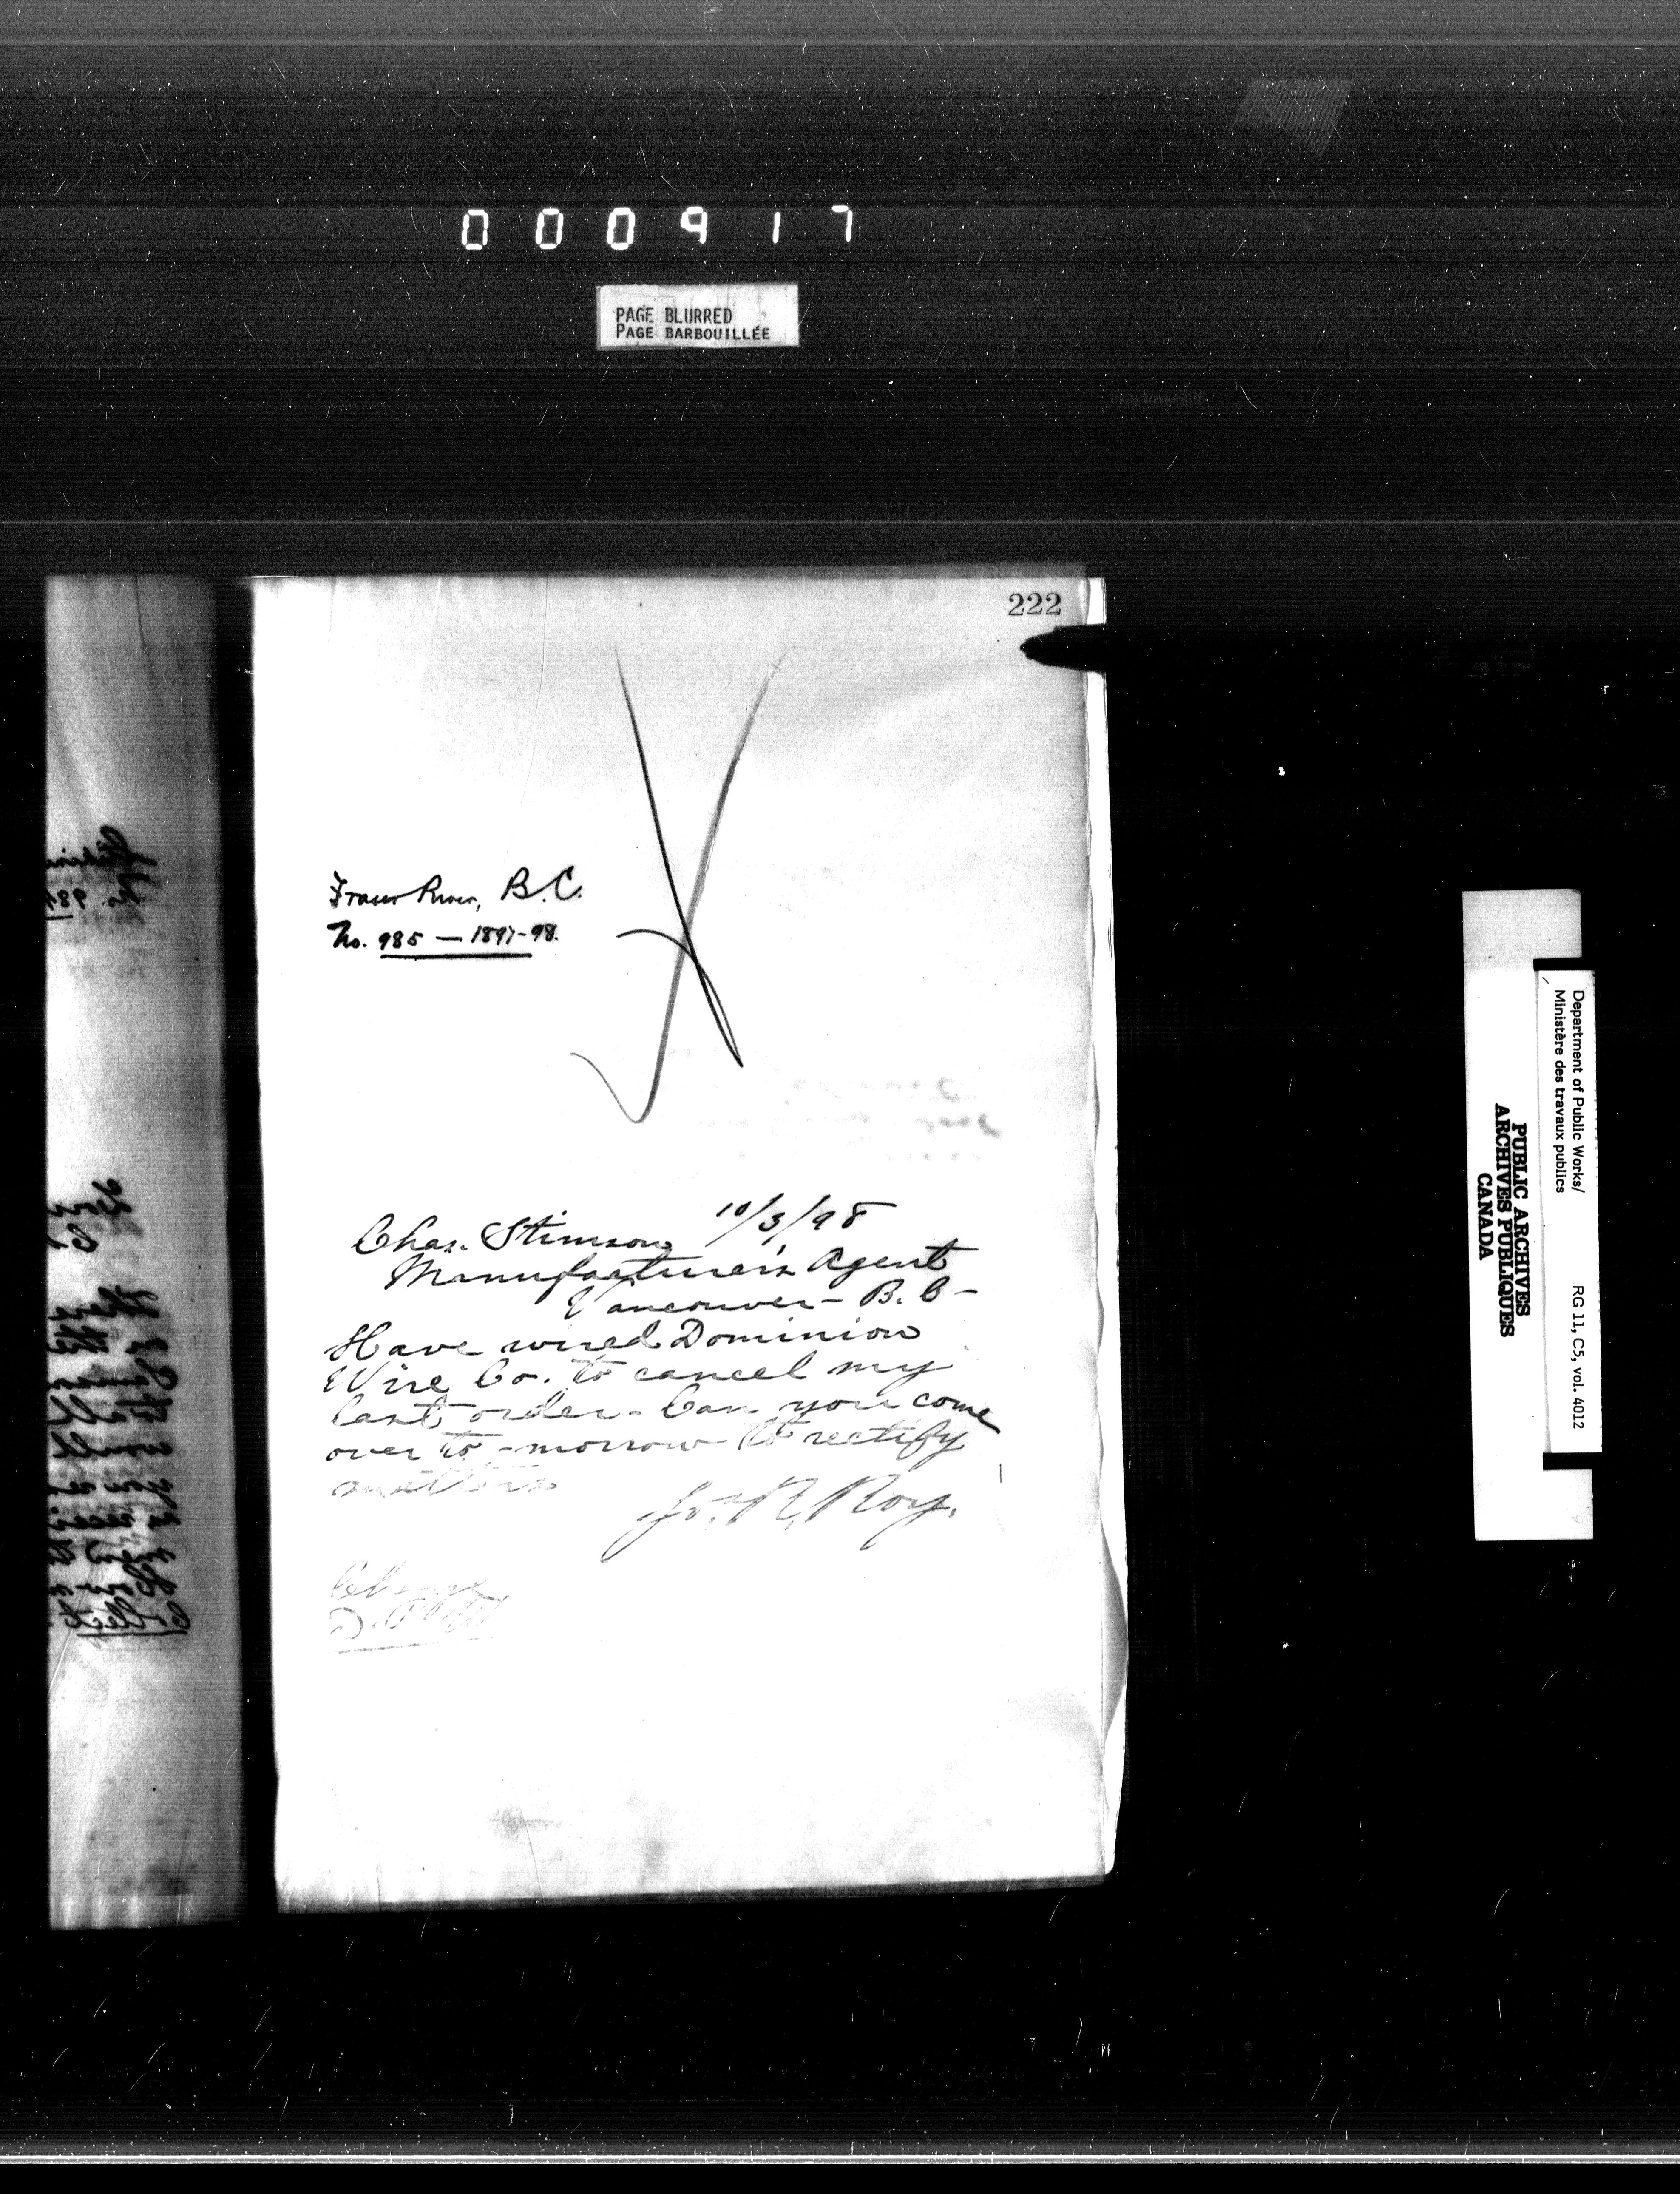 000917
PAGE BLURRED
PAGE BARBOUILLÉE
222
Fraser River, B.C.
No. 985 — 1897-98.
10/3/98
Chas. Stimson
Manufacturer's Agent
Vancouver - B. C -
Have wired Dominion
Wire Co. to cancel my
last order - Can you come
over to-morrow to rectify
matters
Jos. R. Roy.
Charge
Department of Public Works/
Ministère des travaux publics
RG 11, C5, vol. 4012
PUBLIC ARCHIVES
ARCHIVES PUBLIQUES
CANADA